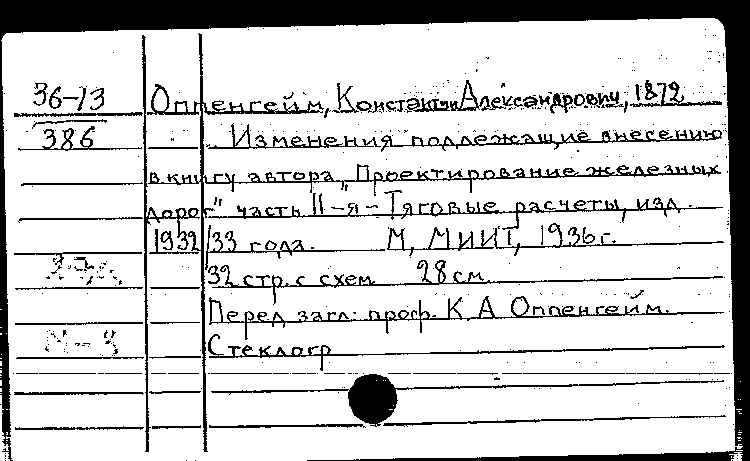 36-13 Оппенгейм, Константин Александрович, 1872
386 Изменения подлежащие внесению
в книгу автора „Проектирование железных
дорог" часть II-я - Тяговые расчеты, изд.
1932/33 года. М, МИИТ, 1936 г.
32 стр. с схем 28 см.
Перед загл: проф. К А Оппенгейм.
М-3
Стеклогр